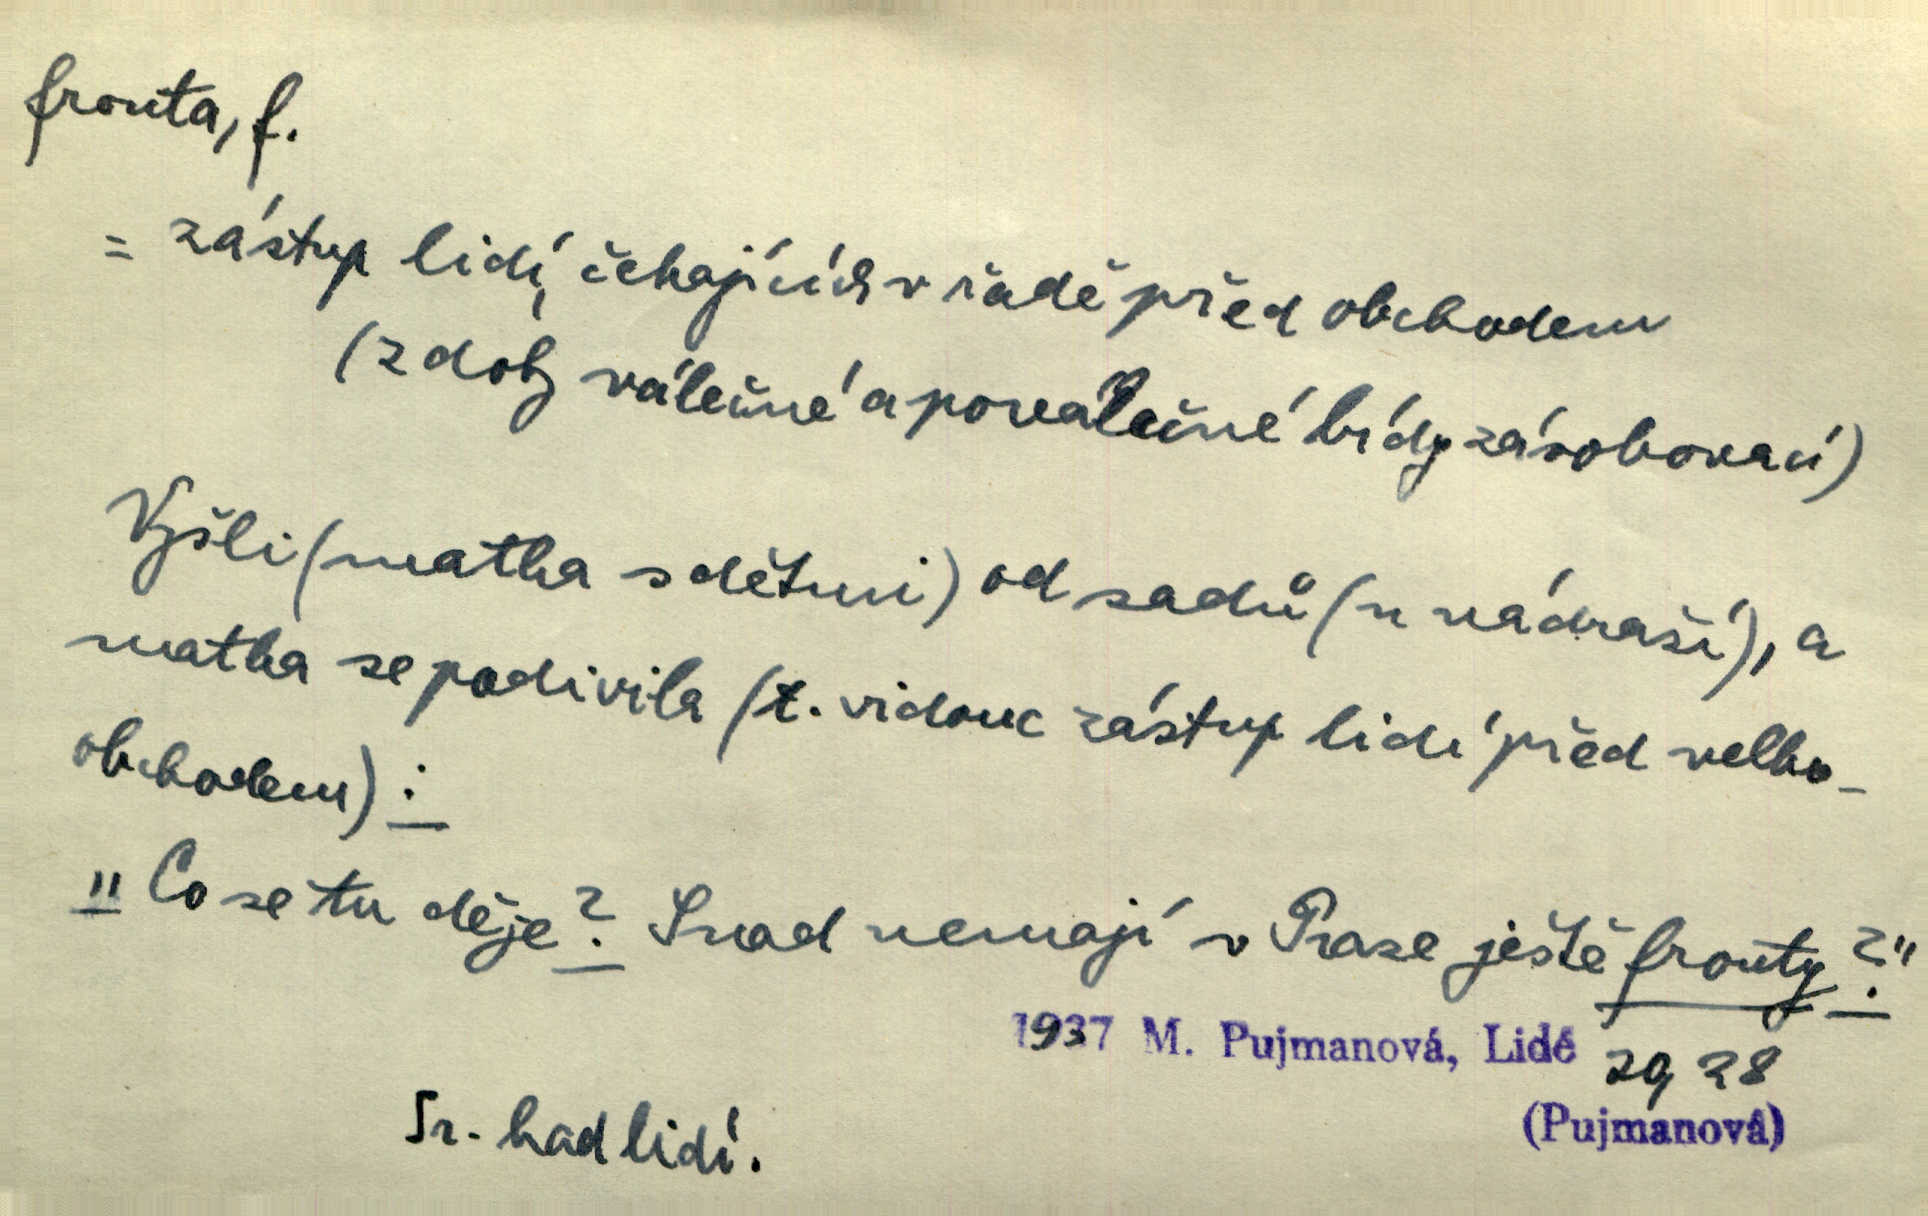 fronta, f.
= zástup lidí, čekajících v řadě před obchodem
(z doby válečné a poválečné bídy zásobovací)
Vyšli (matka s dětmi) od sadů (u nádraží), a
matka se podivila (t. vidouc zástup lidí před velko-
obchodem):
"Co se tu děje? Snad nemají v Praze ještě fronty?"
1937 M. Pujmanová, Lidé 29, 28
(Pujmanová)
Sr. had lidí.